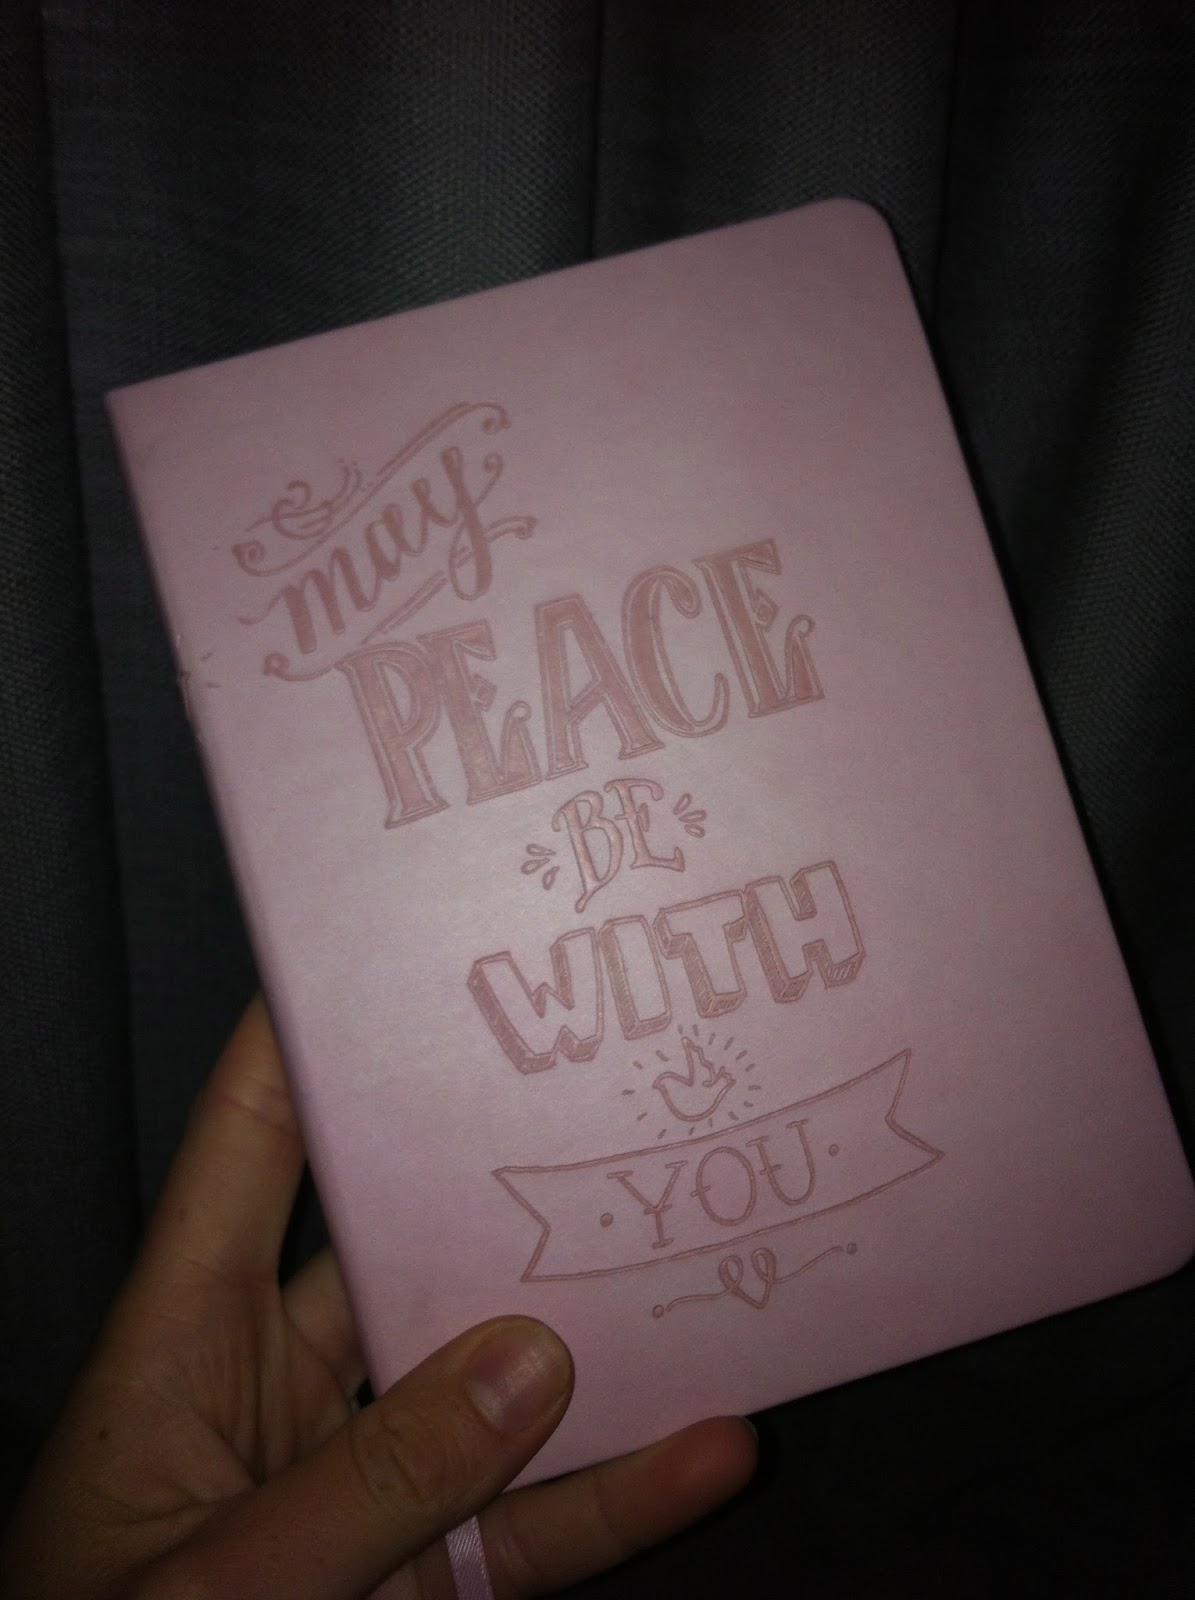 may
PEACE
BE
WITH
YOU